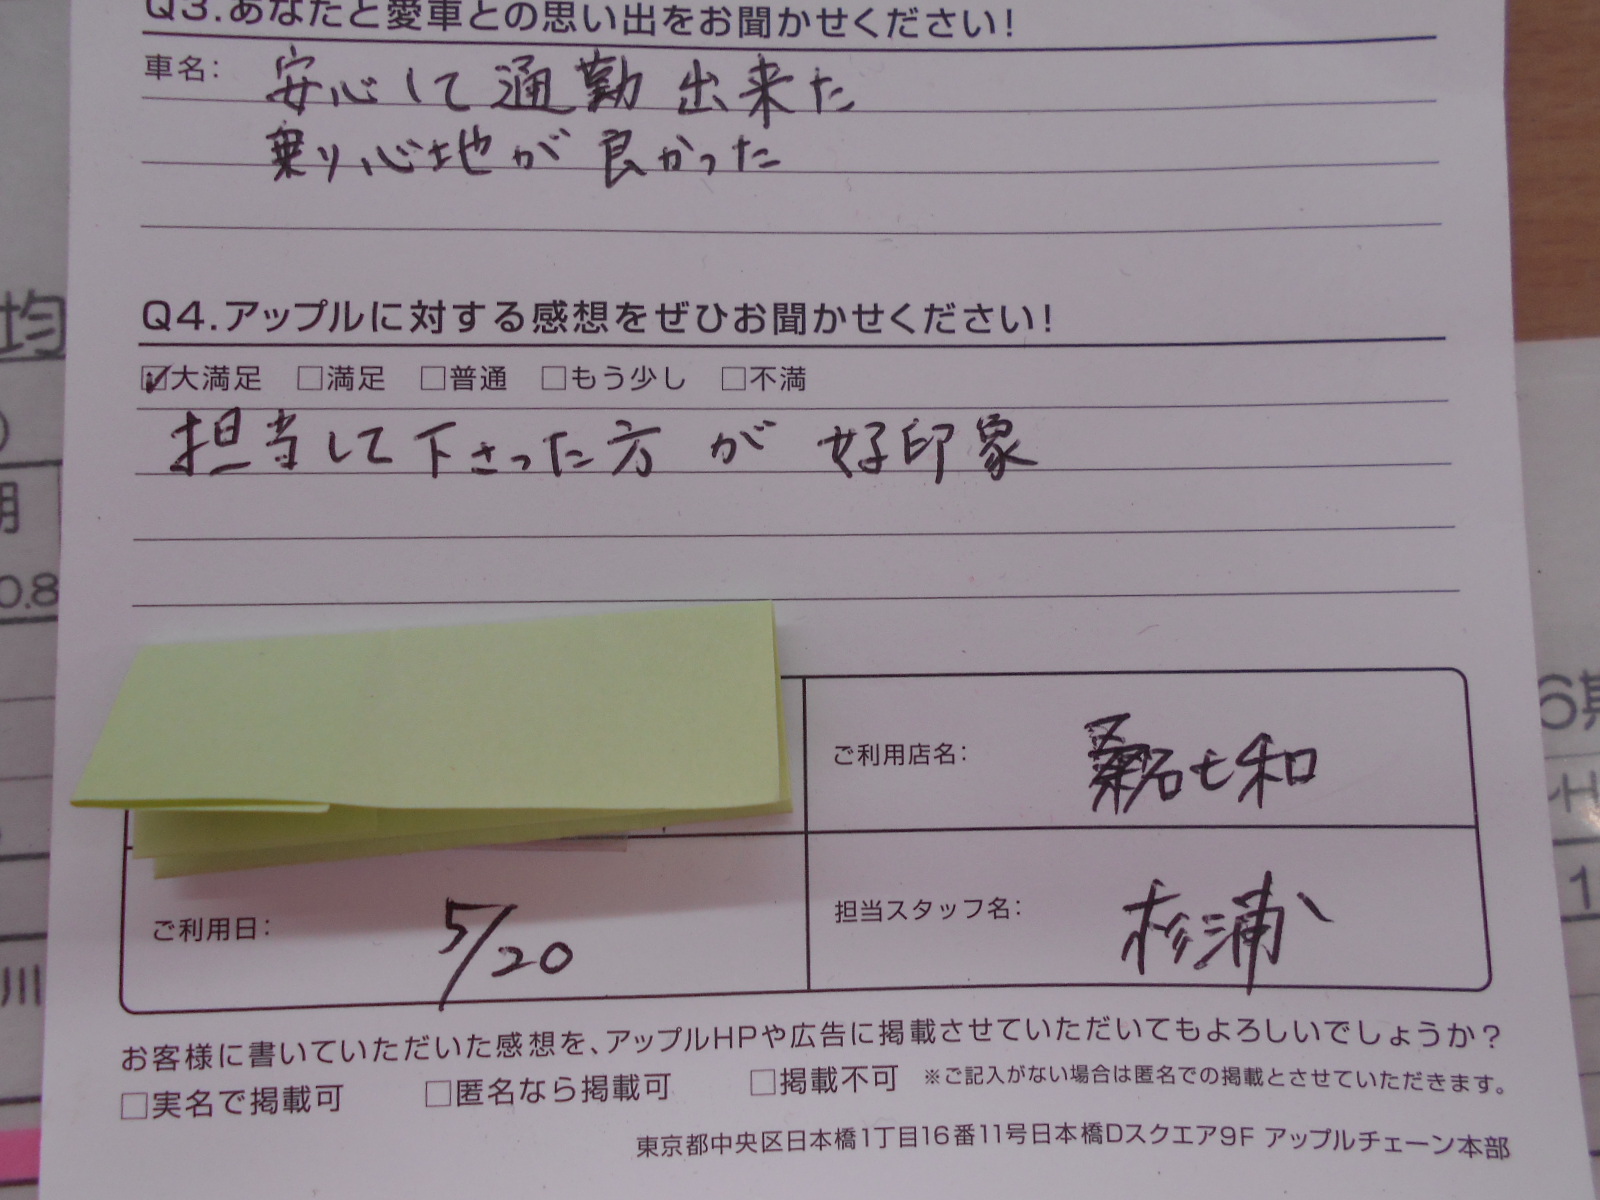 Q3.あなたと愛車との思い出をお聞かせください!
車名: 安心して通勤出来た
乗り心地が良かった
Q4.アップルに対する感想をぜひお聞かせください!
☑大満足 □満足 □普通 □もう少し □不満
担当して下さった方が好印象
ご利用店名: 桑名七和
ご利用日: 5/20
担当スタッフ名: 杉浦
お客様に書いていただいた感想を、アップルHPや広告に掲載させていただいてもよろしいでしょうか?
□実名で掲載可 □匿名なら掲載可 □掲載不可 ※ご記入がない場合は匿名での掲載とさせていただきます。
東京都中央区日本橋1丁目16番11号日本橋Dスクエア9F アップルチェーン本部
均
期
0.8
川
6期
1